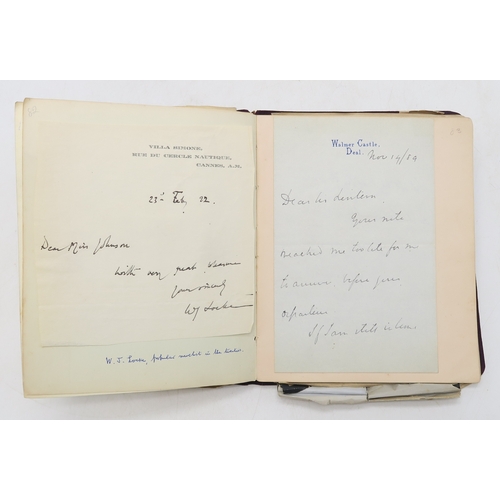 VILLA SIMONE,
RUE DU CERCLE NAUTIQUE,
CANNES, A.M.
23rd Feb. 22.
Dear Miss Johnson
With very great pleasure
Yours sincerely
W J Locke
W. J. Locke, popular novelist in the
Walmer Castle,
Deal.
Nov 14/89
Dear
Your note
reached me too late for
answer before your
departure